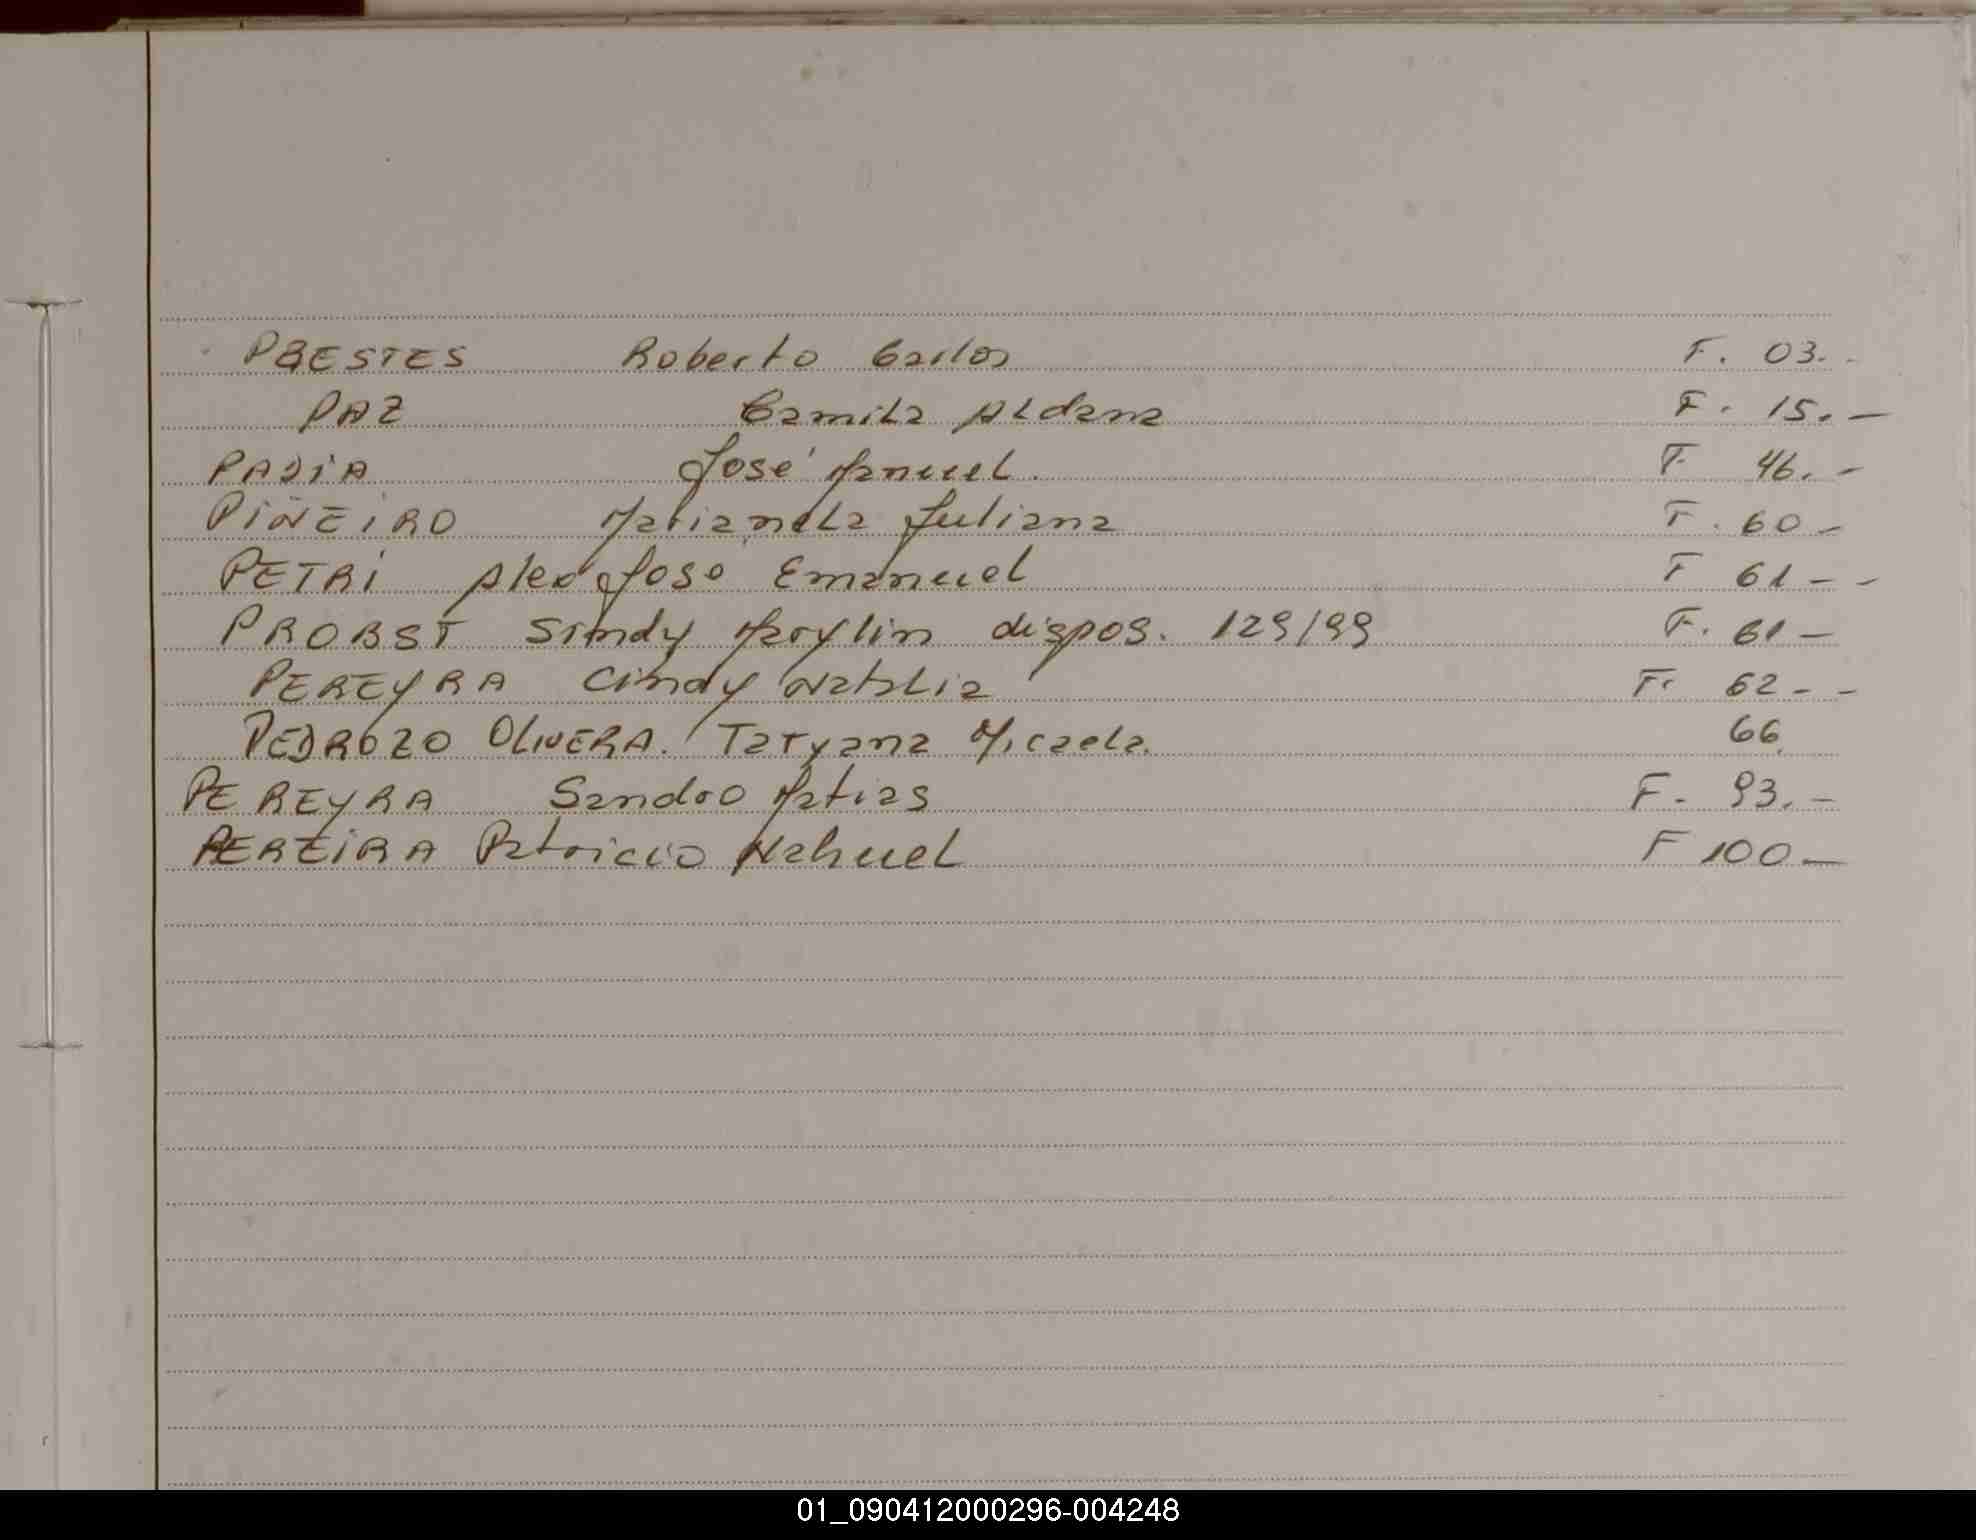 PRESTES Roberto Carlos F. 03.-
PAZ Camila Aldana F. 15.-
PADIA José Manuel. F 46.-
PIÑEIRO Marianela Juliana F. 60-
PETRI Alex José Emanuel F 61--
PROBST Sindy Marylin dispos. 129/99 F. 61-
PEREYRA Cindy Natalia F. 62--
PEDROZO OLIVERA. Tatyana Micaela. 66.
PEREYRA Sandro Matias F. 93.-
PEREIRA Patricio Nahuel F 100-
01_090412000296-004248